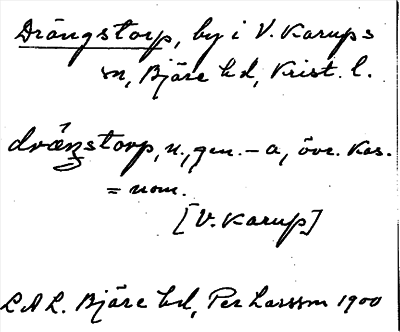 Drängstorp, by i V. Karups
sn, Bjäre hd, Krist. l.
drä́ŋstorp, n., gen. - a, övr. kas.
= nom.
[V. Karup]
L A L. Bjäre hd, Per Larsson 1900